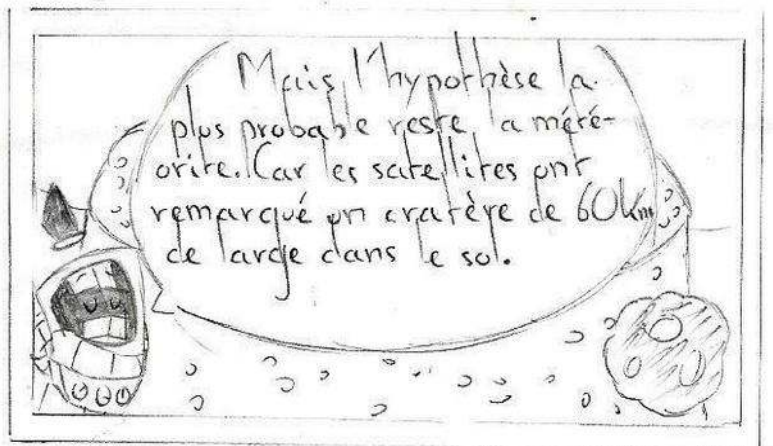 Mais, l'hypothèse la
plus probable reste, la mété-
orite. Car les satellites ont
remarqué un cratère de 60 km
de large dans le sol.